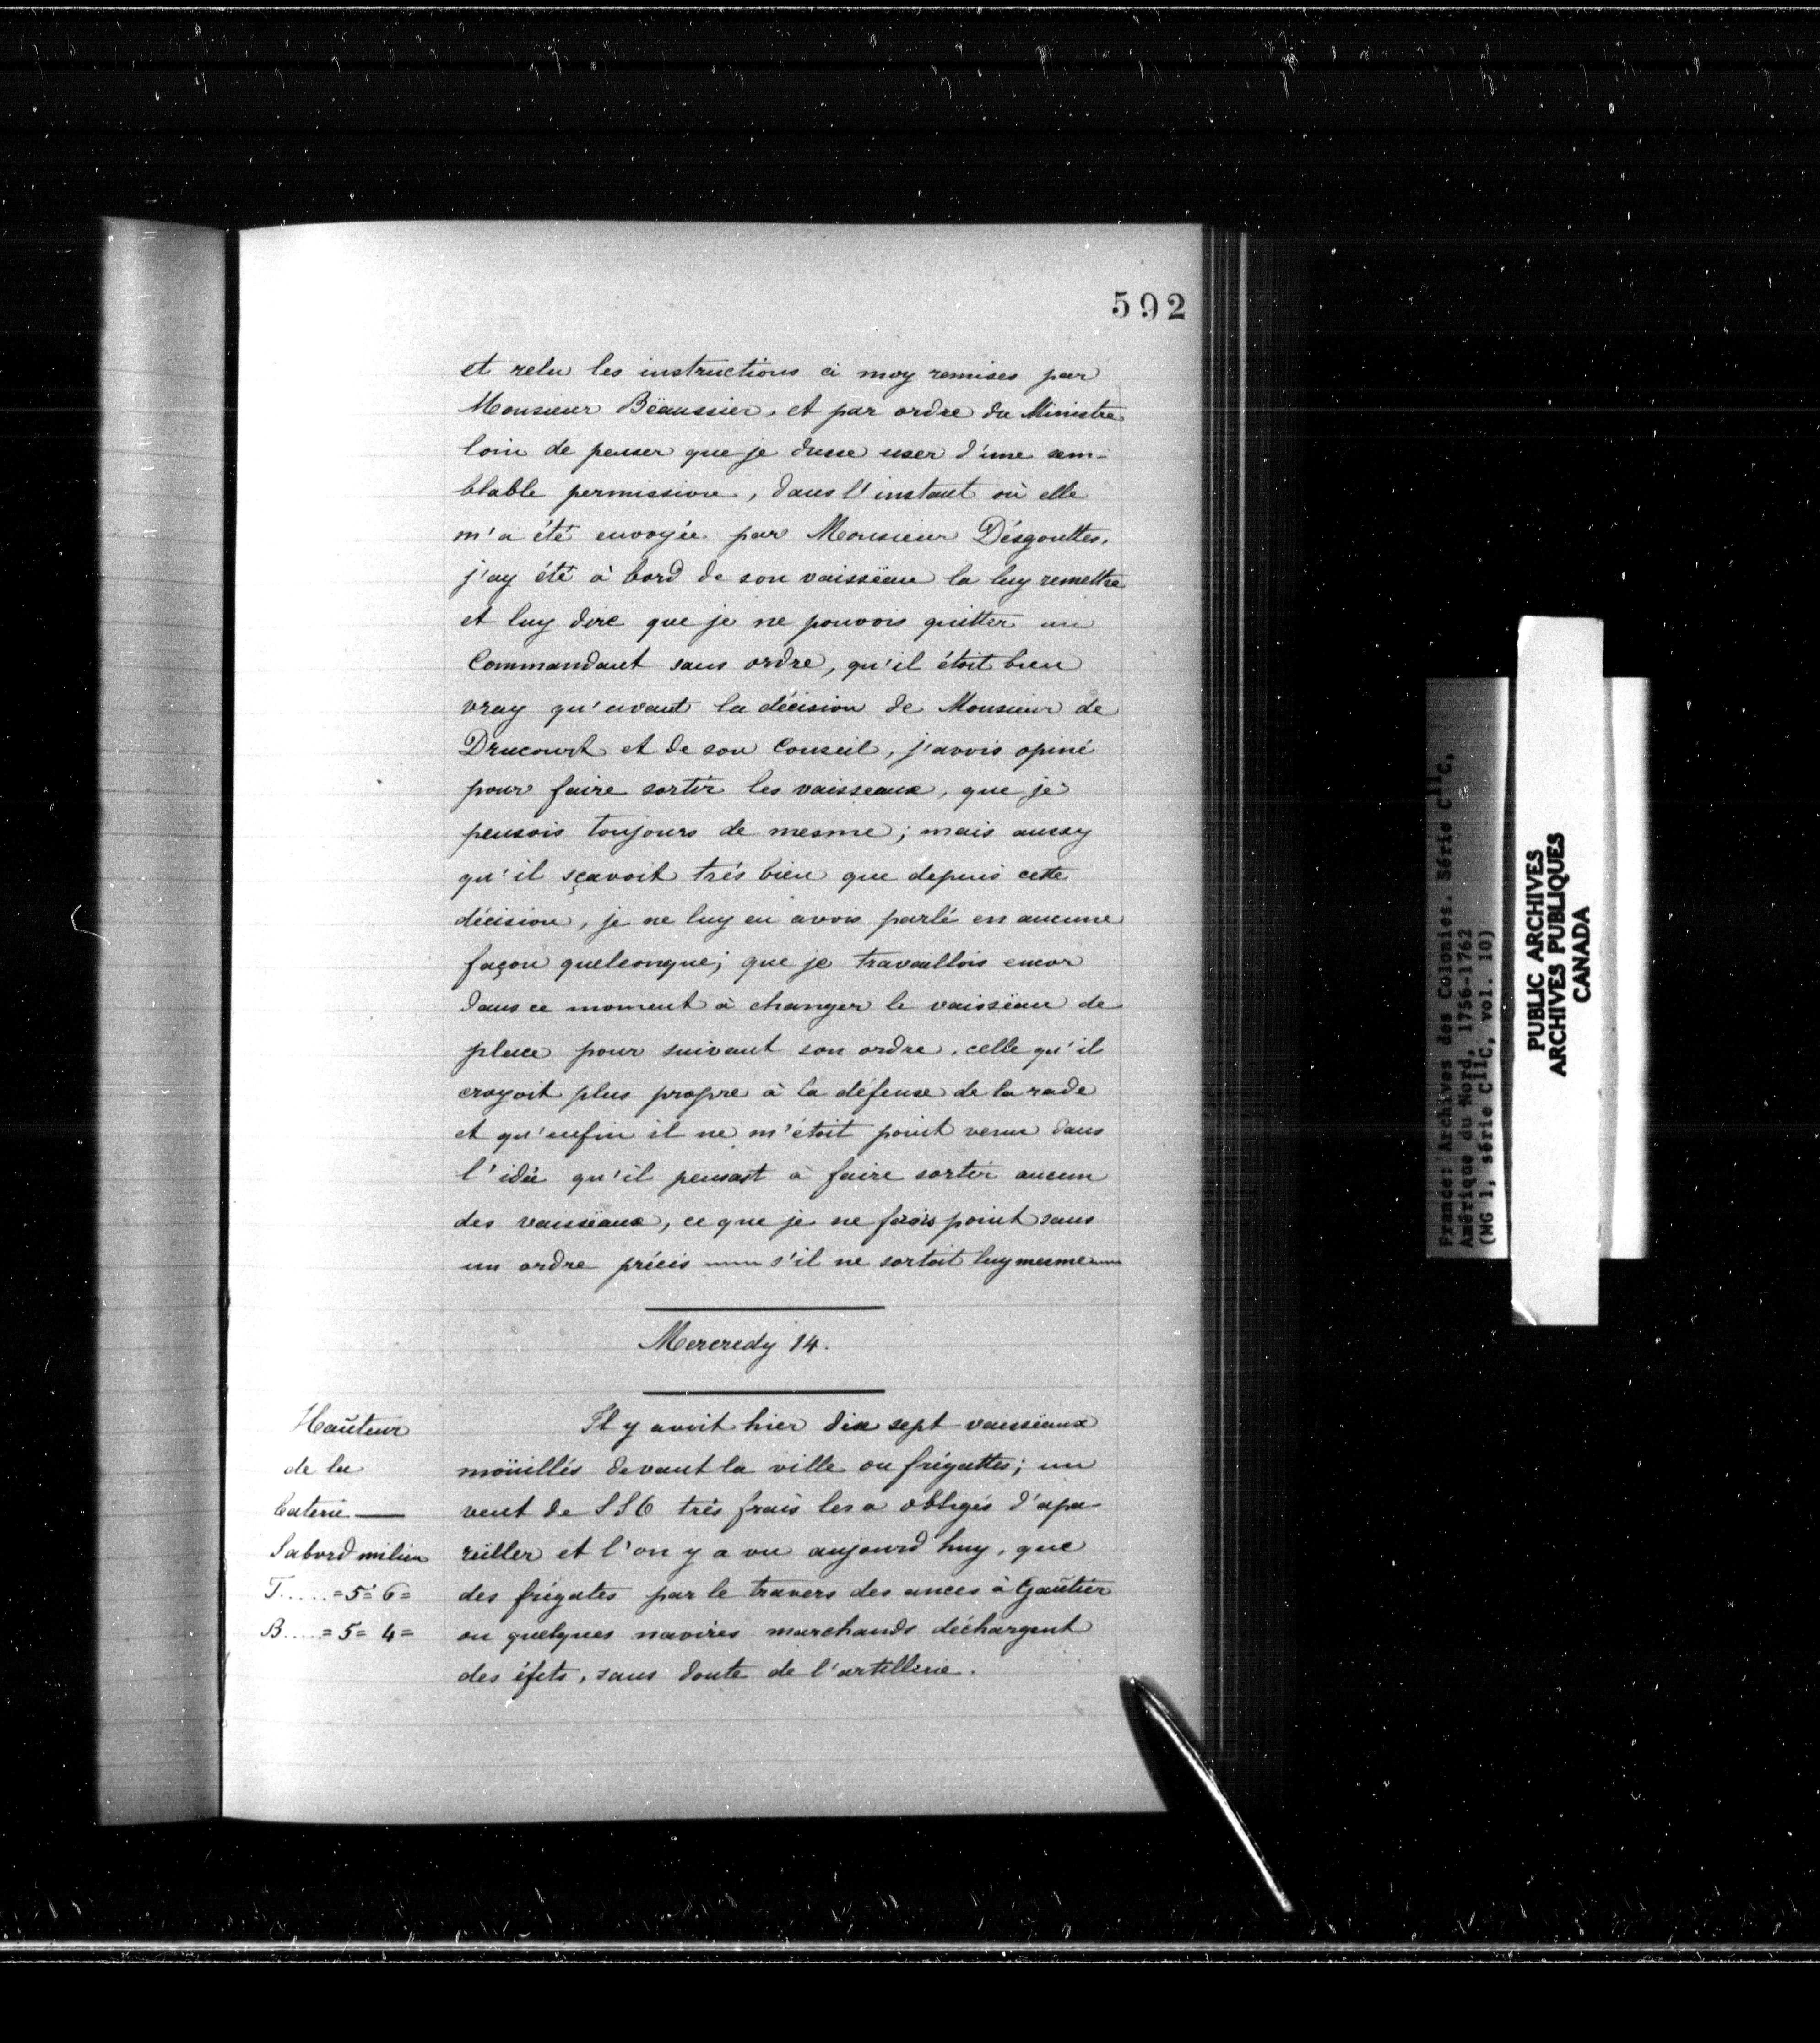 592
et relu les instructions à moy remises par
Monsieur Bëaussier, et par ordre du Ministre
loin de penser que je dusse user d'une sem-
blable permission, dans l'instant où elle
m'a été envoyée par Monsieur Désgouttes,
j'ay été à bord de son vaissëau la luy remettre
et luy dire que je ne pouvois quitter un
Commandant sans ordre, qu'il étoit bien
vray qu'avant la décision de Monsieur de
Drucourt et de son Conseil, j'avois opiné
pour faire sortir les vaisseaux, que je
pensois toujours de mesme; mais aussy
qu'il sçavoit très bien que depuis cette
décision, je ne luy en avois parlé en aucune
façon quelconque; que je travaillois encor
dans ce moment à changer le vaissëau de
place pour suivant son ordre, celle qu'il
croyoit plus propre à la défense de la rade
et qu'enfin il ne m'étoit point venu dans
l'idée qu'il pensast à faire sortir aucun
des vaissëaux, ce que je ne ferois point sans
un ordre précis s'il ne sortoit luy mesme
Mercredy 14.
Hauteur
de la
baterie
Sabord milieu
T..... = 5 = 6 =
B..... = 5 = 4 =
Il y avoit hier dix sept vaissëaux
moüillés devant la ville ou frégattes; un
vent de SSO très frais les a obligés d'apa-
reiller et l'on y a vu aujourd'huy, que
des frégates par le travers des ances à Gautier
ou quelques navires marchands déchargent
des éfets, sans doute de l'artillerie.
France: Archives des Colonies. Série C11C,
Amérique du Nord, 1756-1762
(MG 1, série C11C, vol. 10)
PUBLIC ARCHIVES
ARCHIVES PUBLIQUES
CANADA